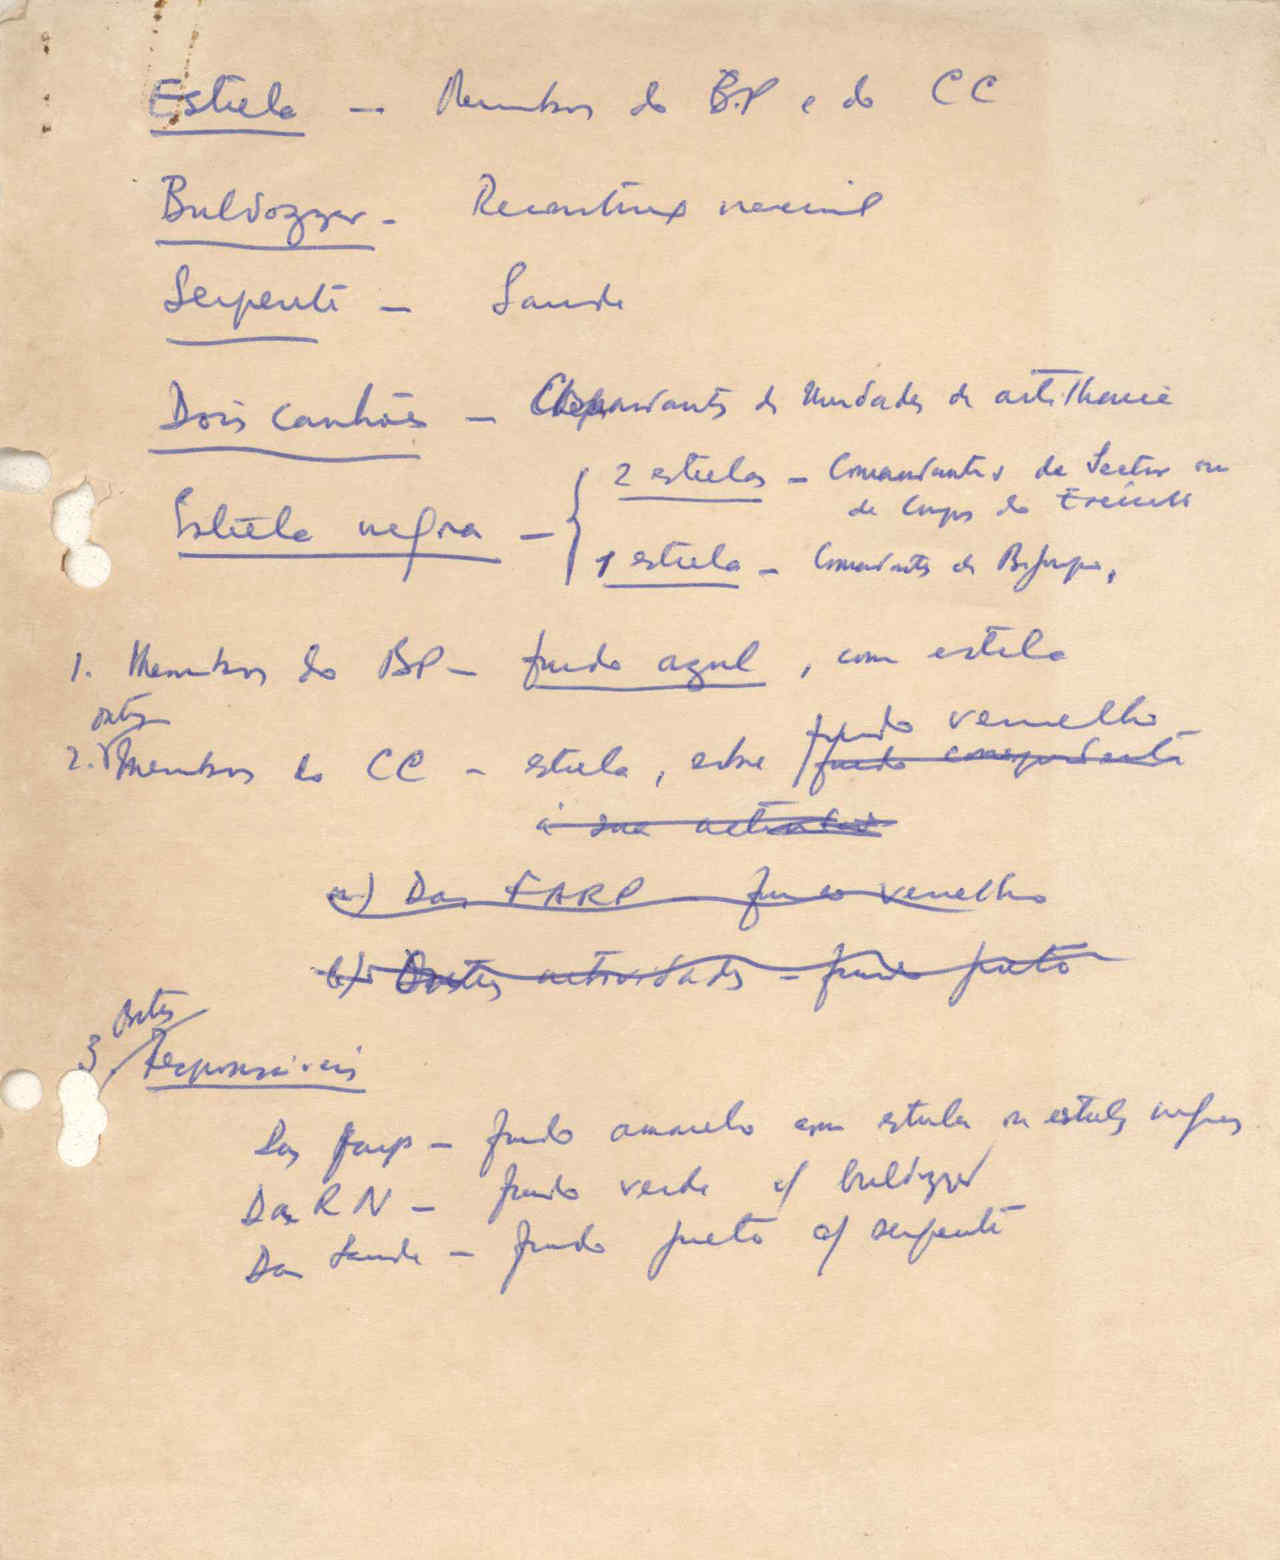 Estrela — Membros do B.P e do CC
Buldozzer - Reconstrução nacional
Serpente - Saude
Dois canhões - Comandantes de Unidades de artilharia
Estrela negra - { 2 estrelas - Comandantes de Sector ou
de Corpo do Exército
1 estrela - Comandantes de Bigrupo.
1. Membros do BP - fundo azul, com estrela
outros fundo vermelho
2. Membros do CC - estrela, sobre fundo correspondente
à sua actividade
a) Das FARP - fundo vermelho
b) Outras actividades - fundo preto
Outros
3. Responsáveis
Das Farp - fundo amarelo com estrela ou estrelas negras
Da RN - fundo verde c/ buldozzer
Da Saude - fundo preto c/ serpente